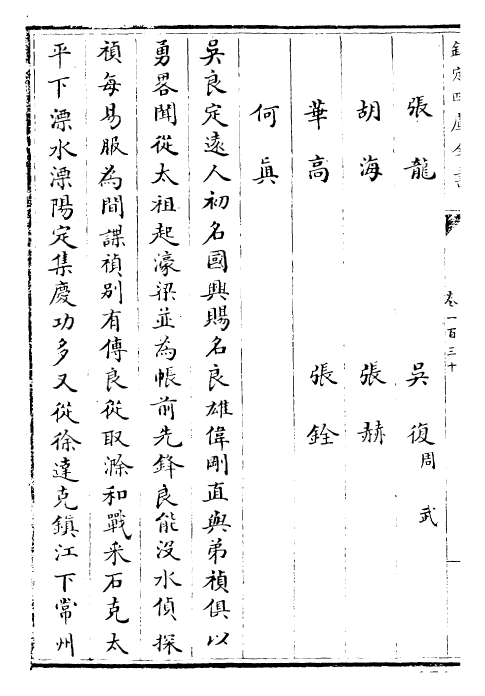 欽定四庫全書
卷一百三十
張龍 吳復周武
胡海 張赫
華高 張銓
何真
吳良定遠人初名國興賜名良雄偉剛直與弟禎俱以
勇畧聞從太祖起濠梁並為帳前先鋒良能沒水偵探
禎每易服為間諜禎别有傳良從取滁和戰采石克太
平下溧水溧陽定集慶功多又從徐達克鎮江下常州